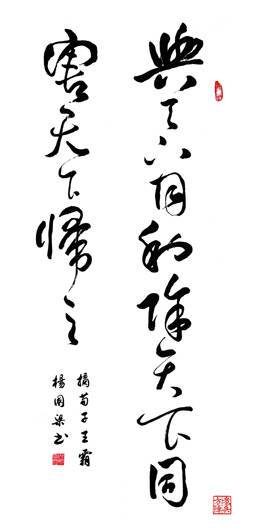 興天下同利除天下同
害天下歸之
摘荀子王霸
楊國梁書